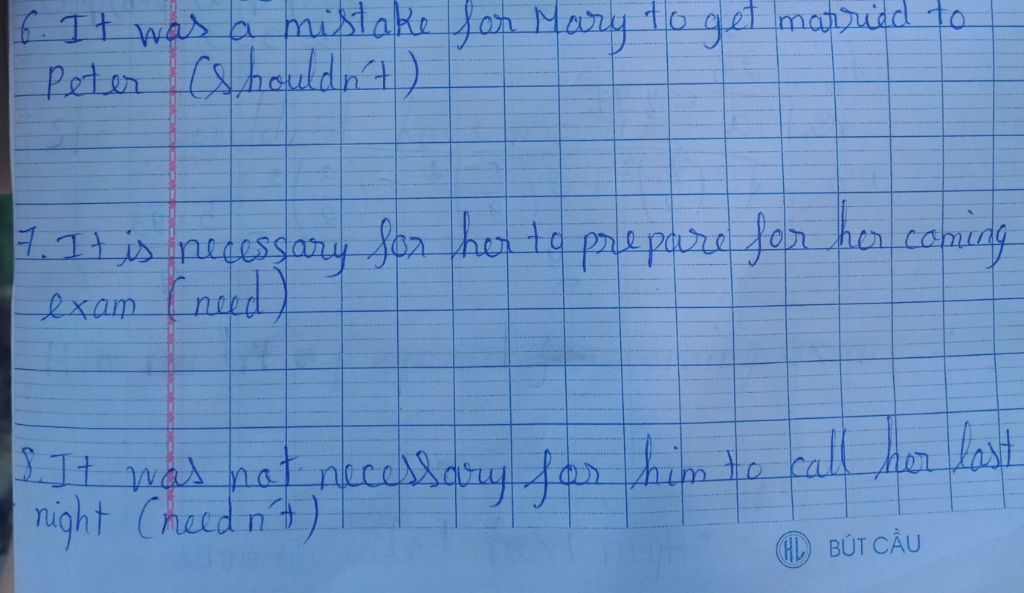 6. It was a mistake for Mary to get married to
Peter (shouldn't)
7. It is necessary for her to prepare for her coming
exam (need)
8. It was not necessary for him to call her last
night (needn't)
HL BÚT CẦU